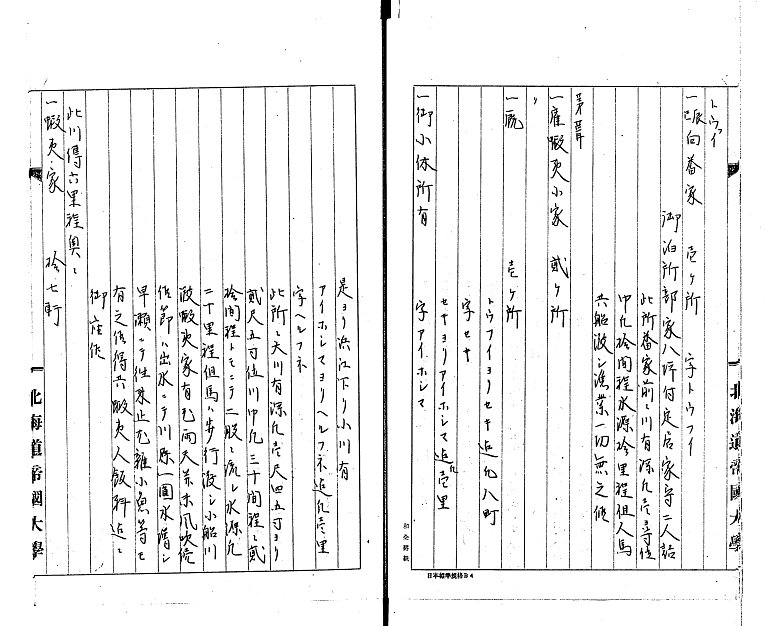 トウブイ
一派向番家 壱ヶ所 字トウフイ
御泊所部家八坪付定居家守二人詰
此所番家前ニ川有深凡壱尋位
巾凡拾間程水源拾里程但人馬
共船渡シ漁業一切無之候
茅葺
一雇蝦夷小家 貳ヶ所
〃
一厩 壱ヶ所
トウフイヨリセキ迄凡八町
字セキ
セキヨリアイホシマ迄凡壱里
一御小休所有 字アイホシマ
是ヨリ浜江下リ小川有
アイホシマヨリヘルフネ迄凡壱里
字ヘルフネ
此所ニ大川有深凡壱尺四五寸ヨリ
貳尺五寸位川巾凡三十間程ニ貳
拾間程トモニテ二股ニ流レ水源凡
二十里程但馬ハ歩行渡シ小船川
蝦夷家有尤雨天並東風吹続
候節ハ出水ニテ川原一圓水溜シ
早瀬ニテ往来止尤雑小魚等モ
有之候得共蝦夷人飯料迄ニ
御座候
此川得六里程奥ニ
一蝦夷家 拾七軒
北海道帝國大學
北海道帝國大學
日本標準規格B4